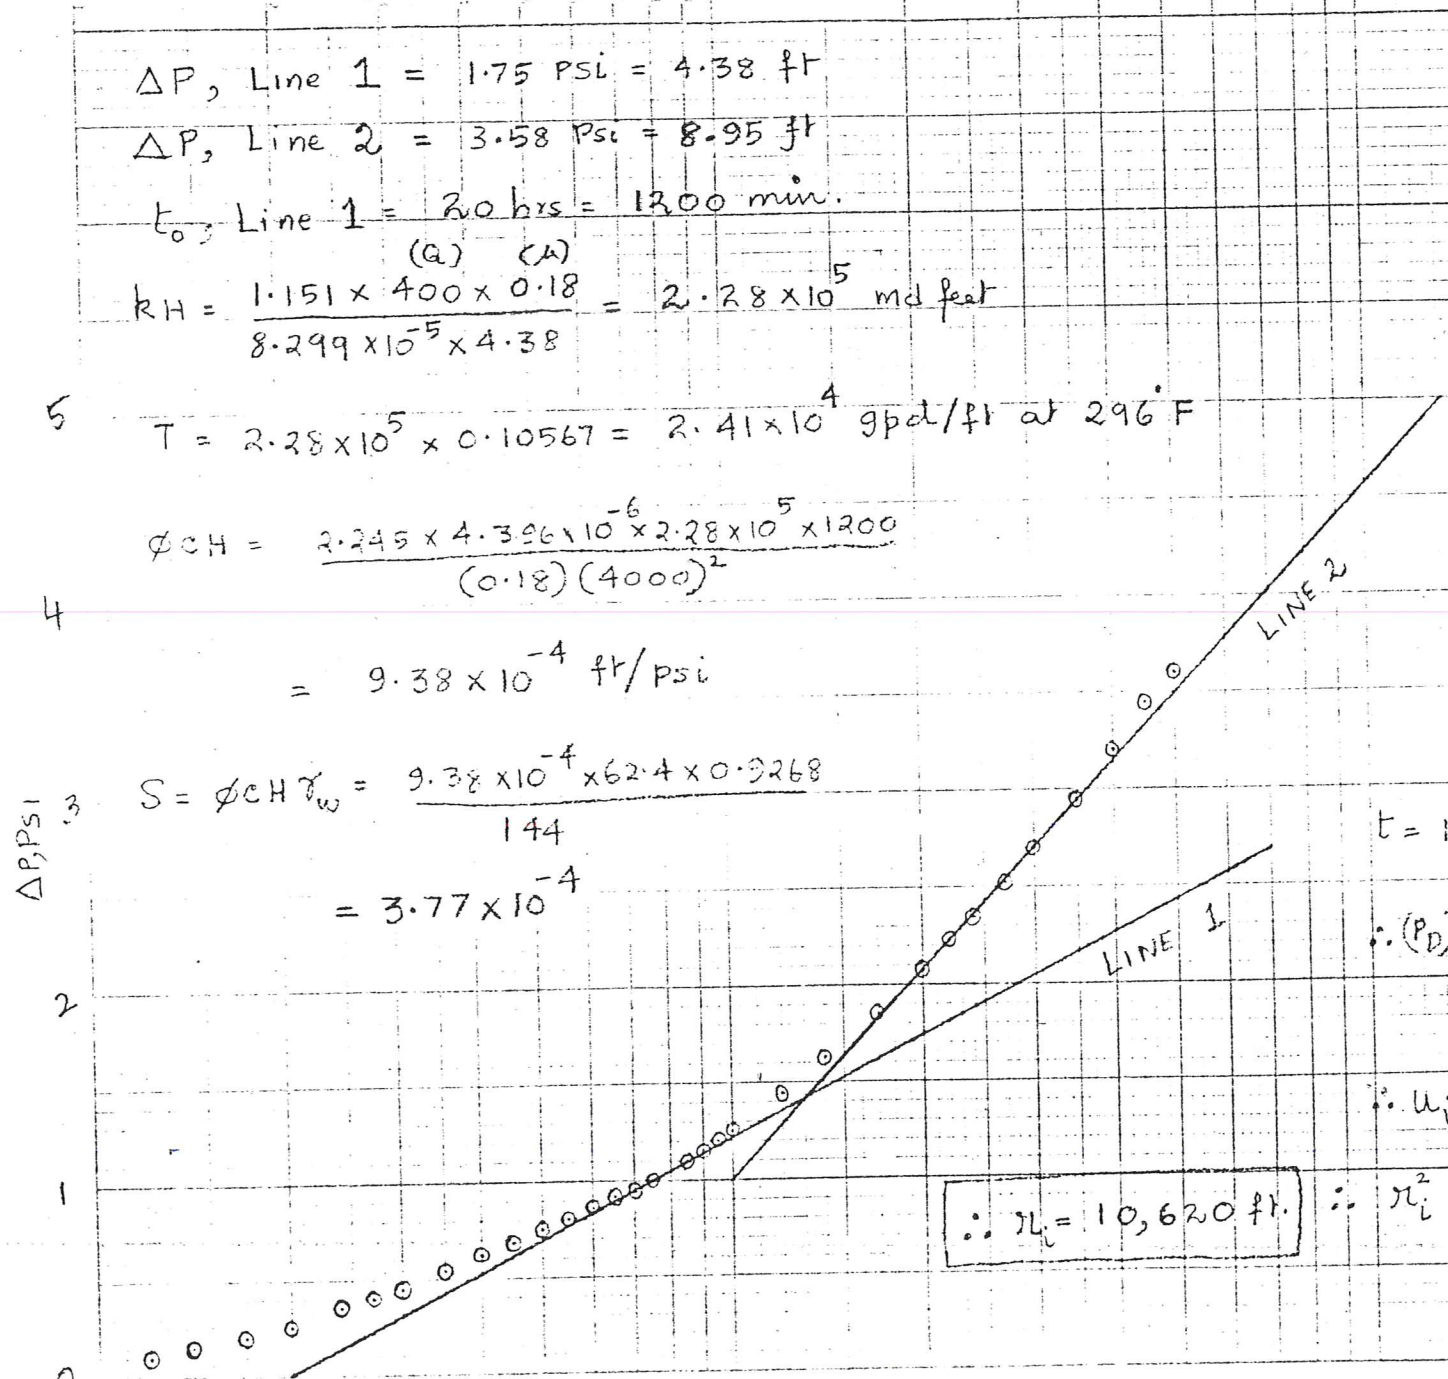 ΔP, Line 1 = 1.75 PSi = 4.38 ft
ΔP, Line 2 = 3.58 Psi = 8.95 ft
t₀, Line 1 = 20 hrs = 1200 min.
(Q) (μ)
kH = 1.151 × 400 × 0.18 / 8.299 × 10⁻⁵ × 4.38 = 2.28 × 10⁵ md feet
5
T = 2.28 × 10⁵ × 0.10567 = 2.41 × 10⁴ gpd/ft at 296°F
øCH = 2.245 × 4.396 × 10⁻⁶ × 2.28 × 10⁵ × 1200 / (0.18) (4000)²
4
LINE 2
= 9.38 × 10⁻⁴ ft/psi
S = øCHγw = 9.38 × 10⁻⁴ × 62.4 × 0.9268 / 144
3
ΔP, PSI
t =
= 3.77 × 10⁻⁴
LINE 1
∴ (PD)
2
∴ ui
1
∴ ri = 10,620 ft.
∴ ri²
0